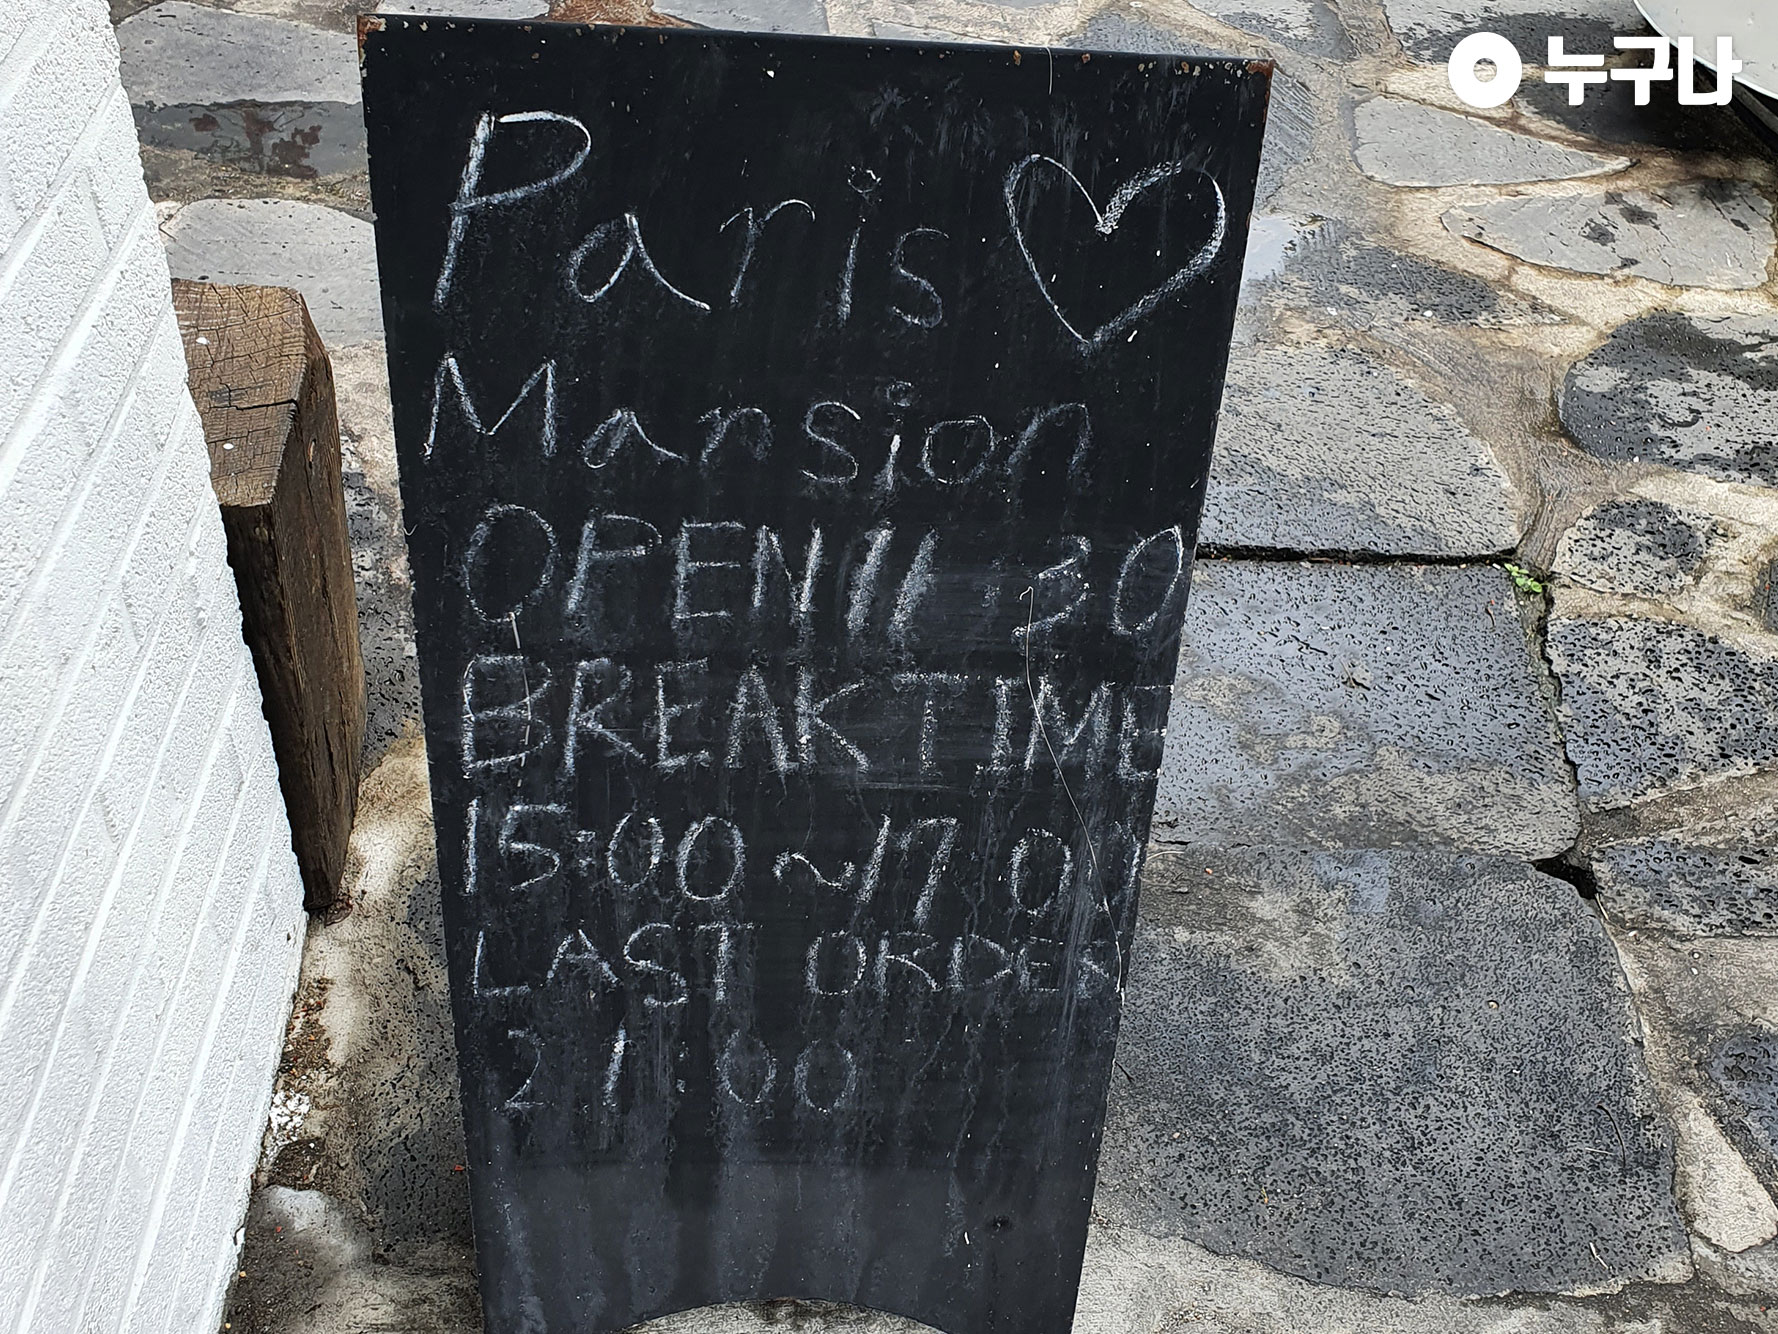 누구나
Paris
Mansion
OPEN 11:30
BREAK TIME
15:00~17:00
LAST ORDER
21:00